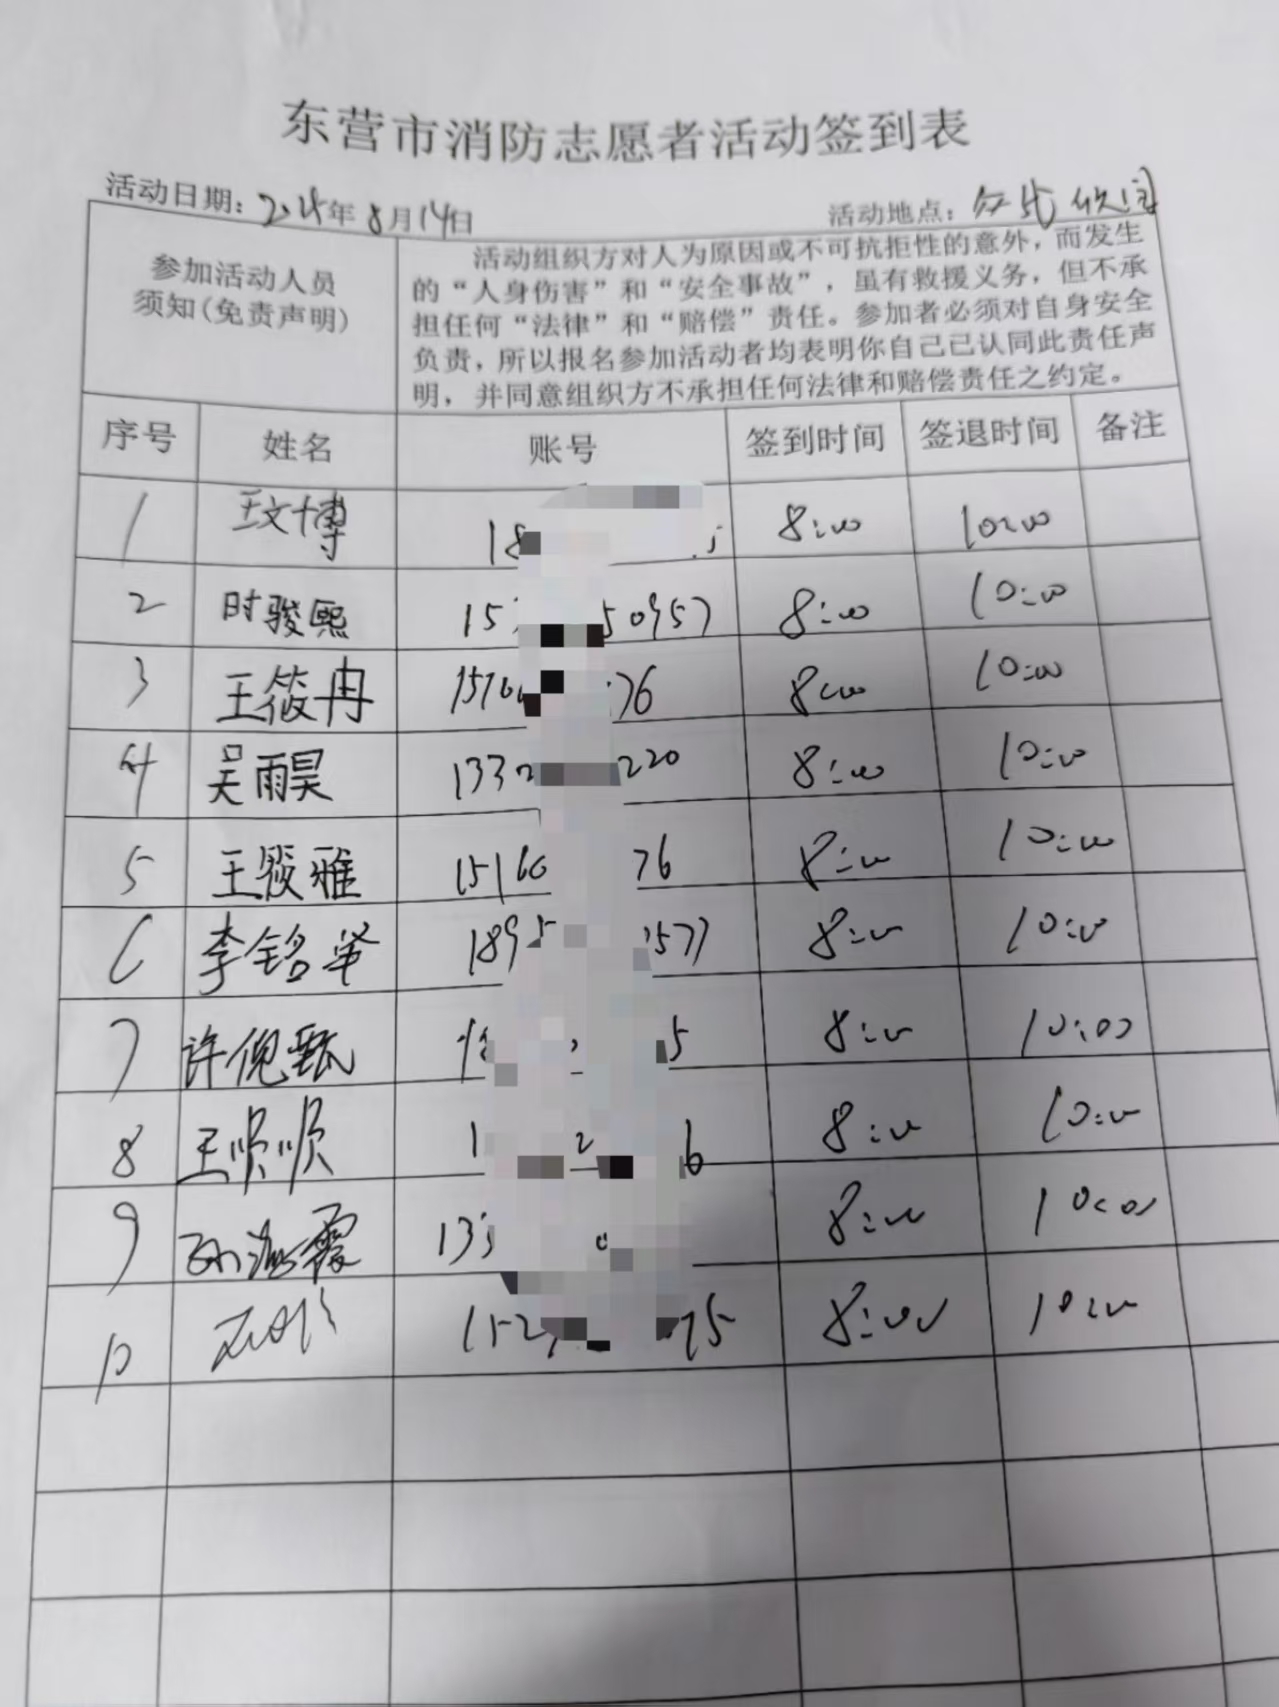 东营市消防志愿者活动签到表
活动日期：2024年8月14日 活动地点：
参加活动人员
须知(免责声明)
活动组织方对人为原因或不可抗拒性的意外，而发生
的“人身伤害”和“安全事故”，虽有救援义务，但不承
担任何“法律”和“赔偿”责任。参加者必须对自身安全
负责，所以报名参加活动者均表明你自己已认同此责任声
明，并同意组织方不承担任何法律和赔偿责任之约定。
序号 姓名 账号 签到时间 签退时间 备注
1 王文博 18 8:00 10:00
2 时骏熙 15 50957 8:00 10:00
3 王筱冉 1516 76 8:00 10:00
4 吴雨昊 133 220 8:00 10:00
5 王筱雅 15160 76 8:00 10:00
6 李铭 189 577 8:00 10:00
7 许倪甄 5 8:00 10:00
8 王顺顺 1 2 6 8:00 10:00
9 孙海霞 13 8:00 10:00
10 152 75 8:00 10:00